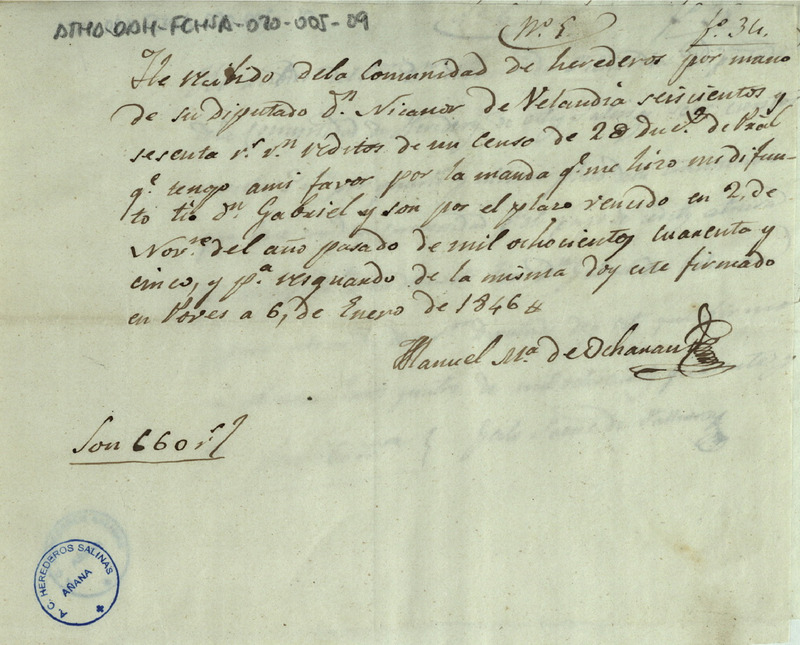 ATHA-DAH-FCHSA-030-005-09
Nº. 5 fº. 34.
He recibido dela Comunidad de herederos por mano
de su Diputado Dn. Nicanor de Velandia seiscientos y
sesenta rs. vn. reditos de un Censo de 2 8 Duc.s de Pral
qe. tengo ami favor por la manda qe. me hizo mi difun-
to tio Dn. Gabriel y son por el plazo vencido en 2, de
Novre. del año pasado de mil ochocientos cuarenta y
cinco, y pa. resguardo de la misma doy este firmado
en Poves a 6, de Enero de 1846
Manuel Ma. de Ocharan
Son 660 rs.
A. C. HEREDEROS SALINAS
AÑANA